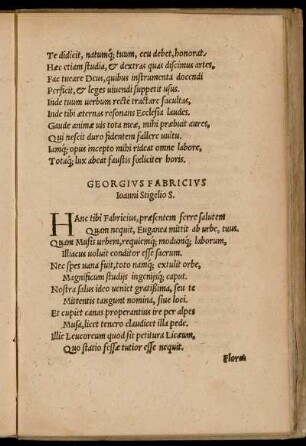 Te didicit, natumq́; tuum, ceu debet, honorat.
Hæc etiam studia, & dextras quas discimus artes,
Fac tueare Deus, quibus instrumenta docendi
Perficit, & leges viuendi suppetit usus.
Inde tuum uerbum recte tractare facultas,
Inde tibi æternas resonans Ecclesia laudes.
Gaude animæ uis tota meæ, mihi præbuit aures,
Qui nescit duro fidentem fallere uultu.
Iamq́; opus incepto mihi rideat omne labore,
Totaq́; lux abeat faustis fœliciter horis.
GEORGIVS FABRICIVS
Ioanni Stigelio S.
HAnc tibi Fabricius, præsentem ferre salutem
Quam nequit, Euganea mittit ab urbe, tuus.
Quam Musis urbem, requiemq́; modumq́; laborum,
Illiacus uoluit conditor esse sacrum.
Nec spes uana fuit, toto namq́; extulit orbe,
Magnificum studijs ingenijsq́; caput.
Nostra salus ideo ueniet gratissima, seu te
Mittentis tangunt nomina, siue loci.
Et cupiet canas properantius ire per alpes
Musa, licet tenero claudicet illa pede.
Illic Leucoreum quod sit petitura Licæum,
Quo statio fessæ tutior esse nequit.
Florem